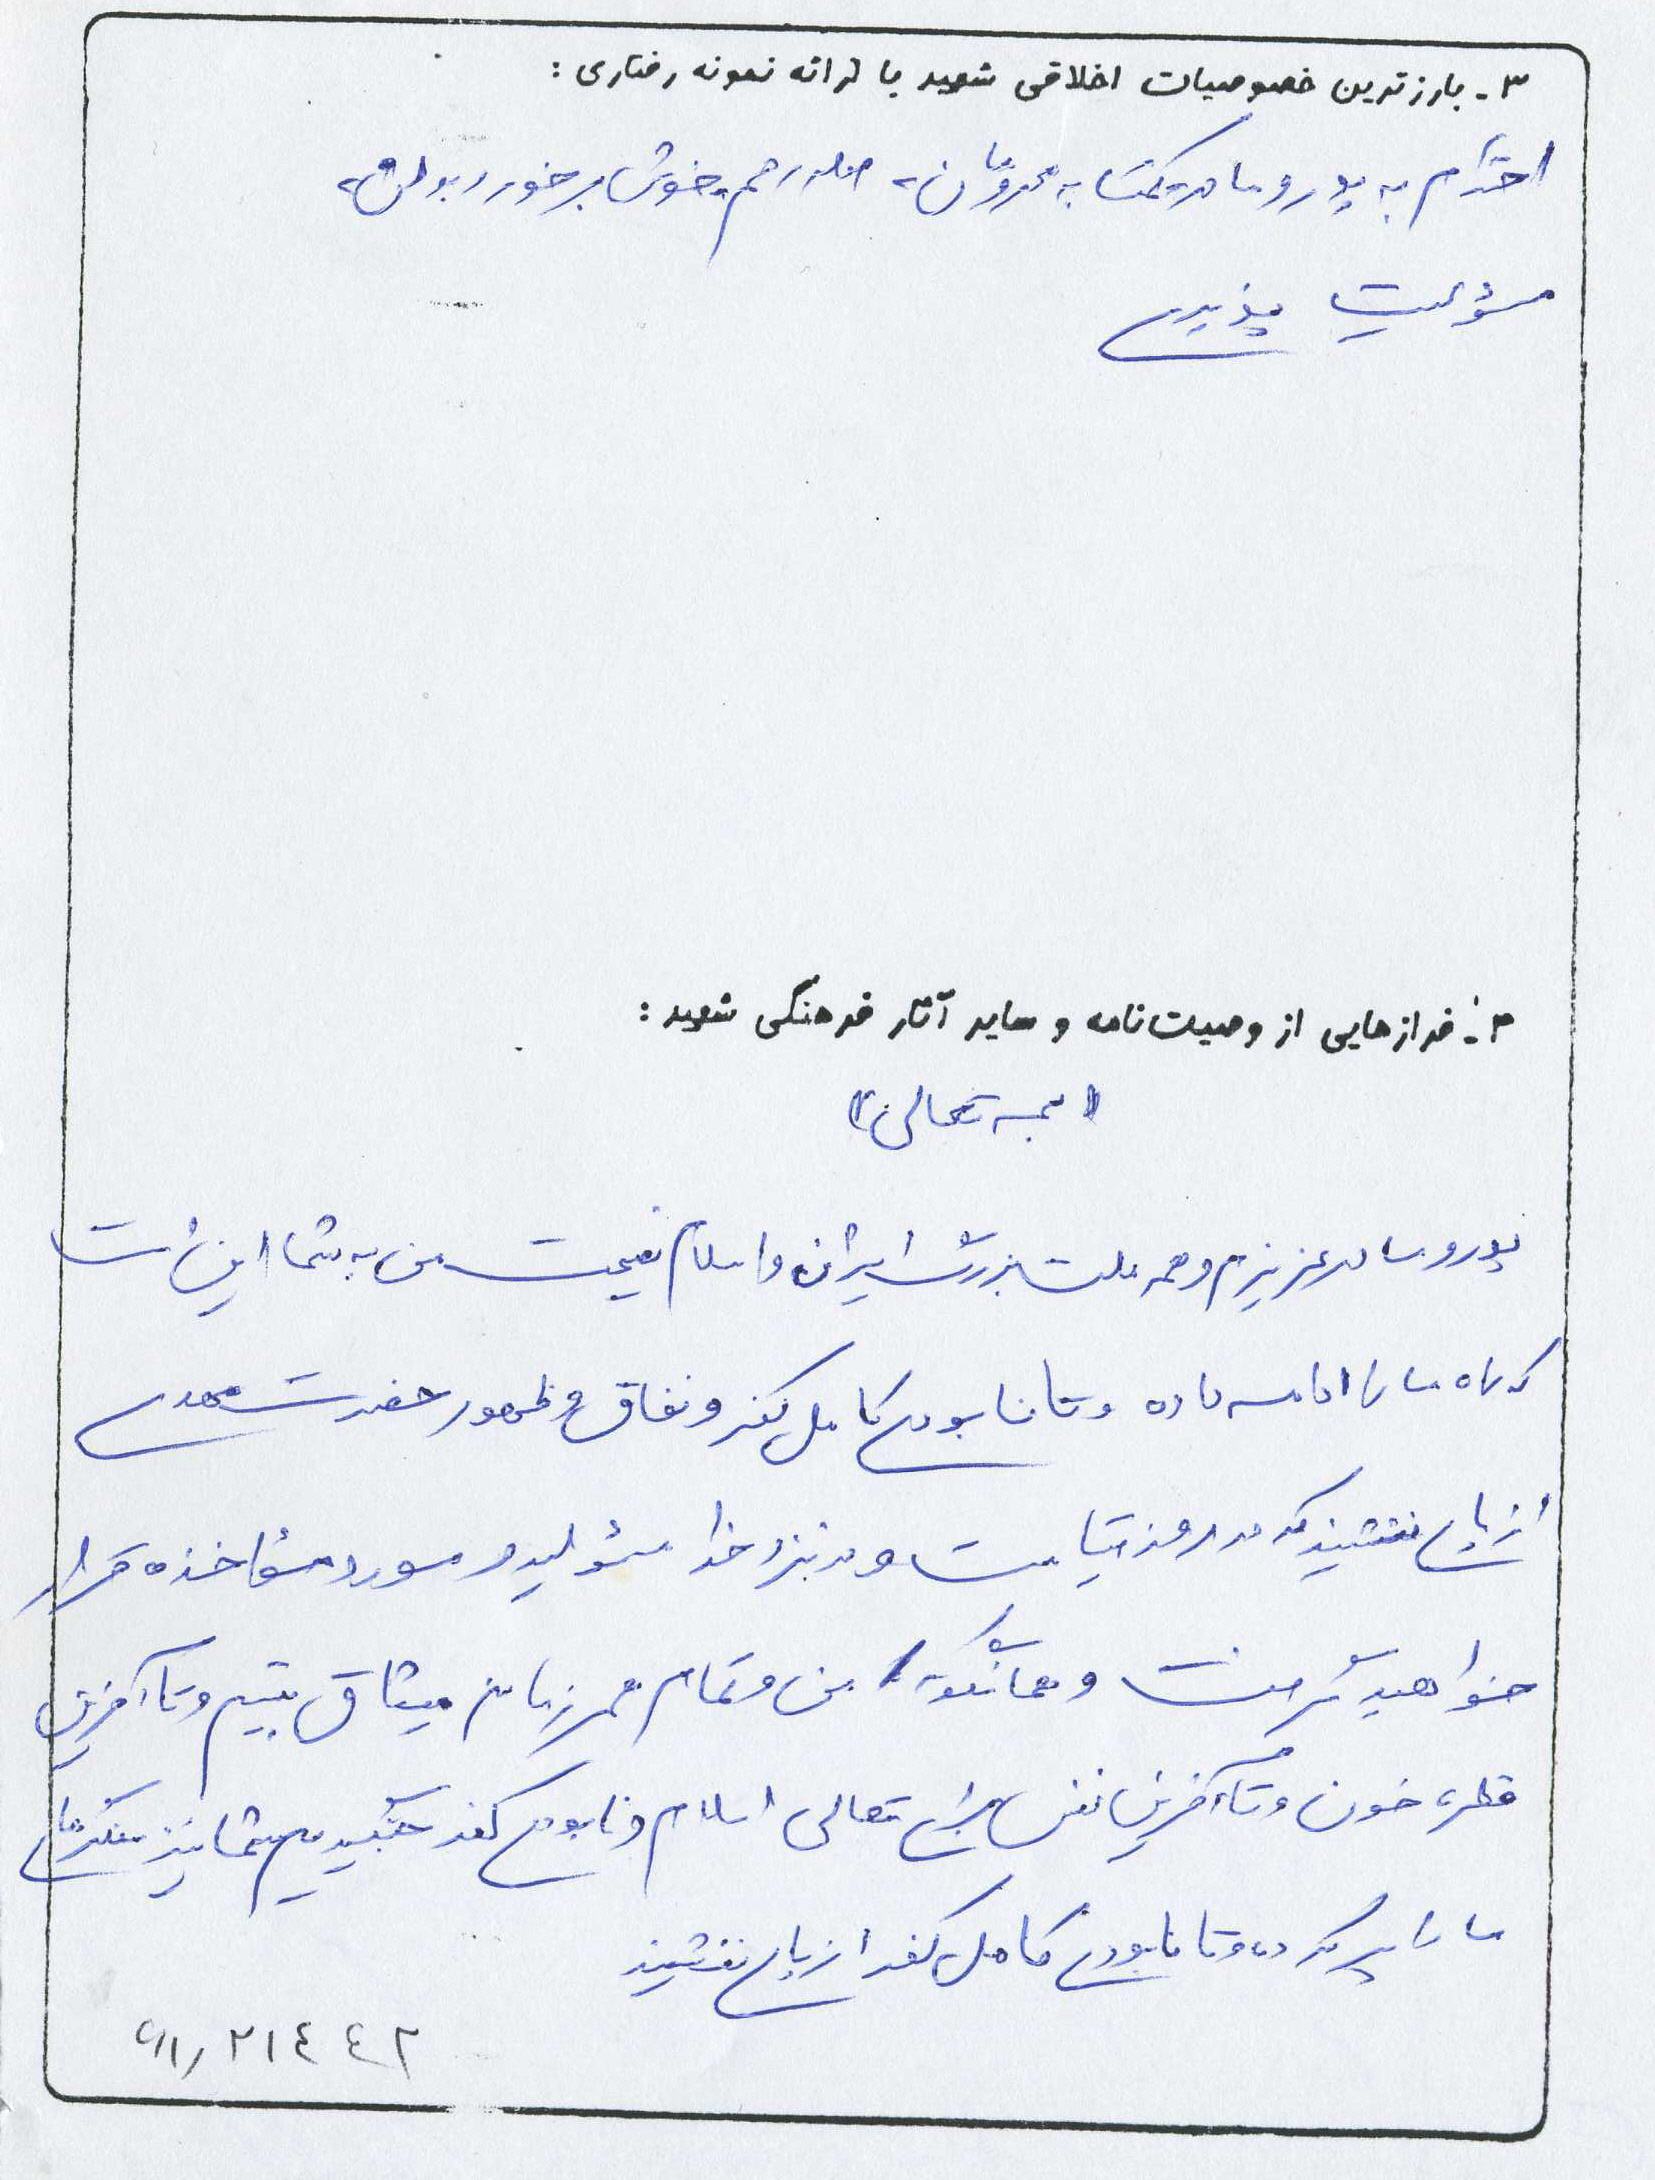 ۳- بارزترین خصوصیات اخلاقی شهید با ارائه نمونه رفتاری:
احترام به پدر و مادر، کمک به محرومان، صله رحم، خوش برخورد بودن،
مسؤلیت پذیری
۴- فرازهایی از وصیت‌نامه و سایر آثار فرهنگی شهید:
«بسمه تعالی»
پدر و مادر عزیزم و همه ملت بزرگ ایران و اسلام نصیحت من به شما این است
که راه ما را ادامه داده و تا نابودی کامل کفر و نفاق و ظهور حضرت مهدی
از پای ننشینید که در روز قیامت و در نزد خدا مسئولید و مورد مؤاخذه قرار
خواهید گرفت و همانگونه من و تمام همرزمانم میثاق بستیم و تا آخرین
قطره خون و تا آخرین نفس برای تعالی اسلام و نابودی کفر جنگیدیم شما نیز سنگرهای
ما را پر کرده و تا نابودی کامل کفر از پای ننشینید
۲۱۴۴۲